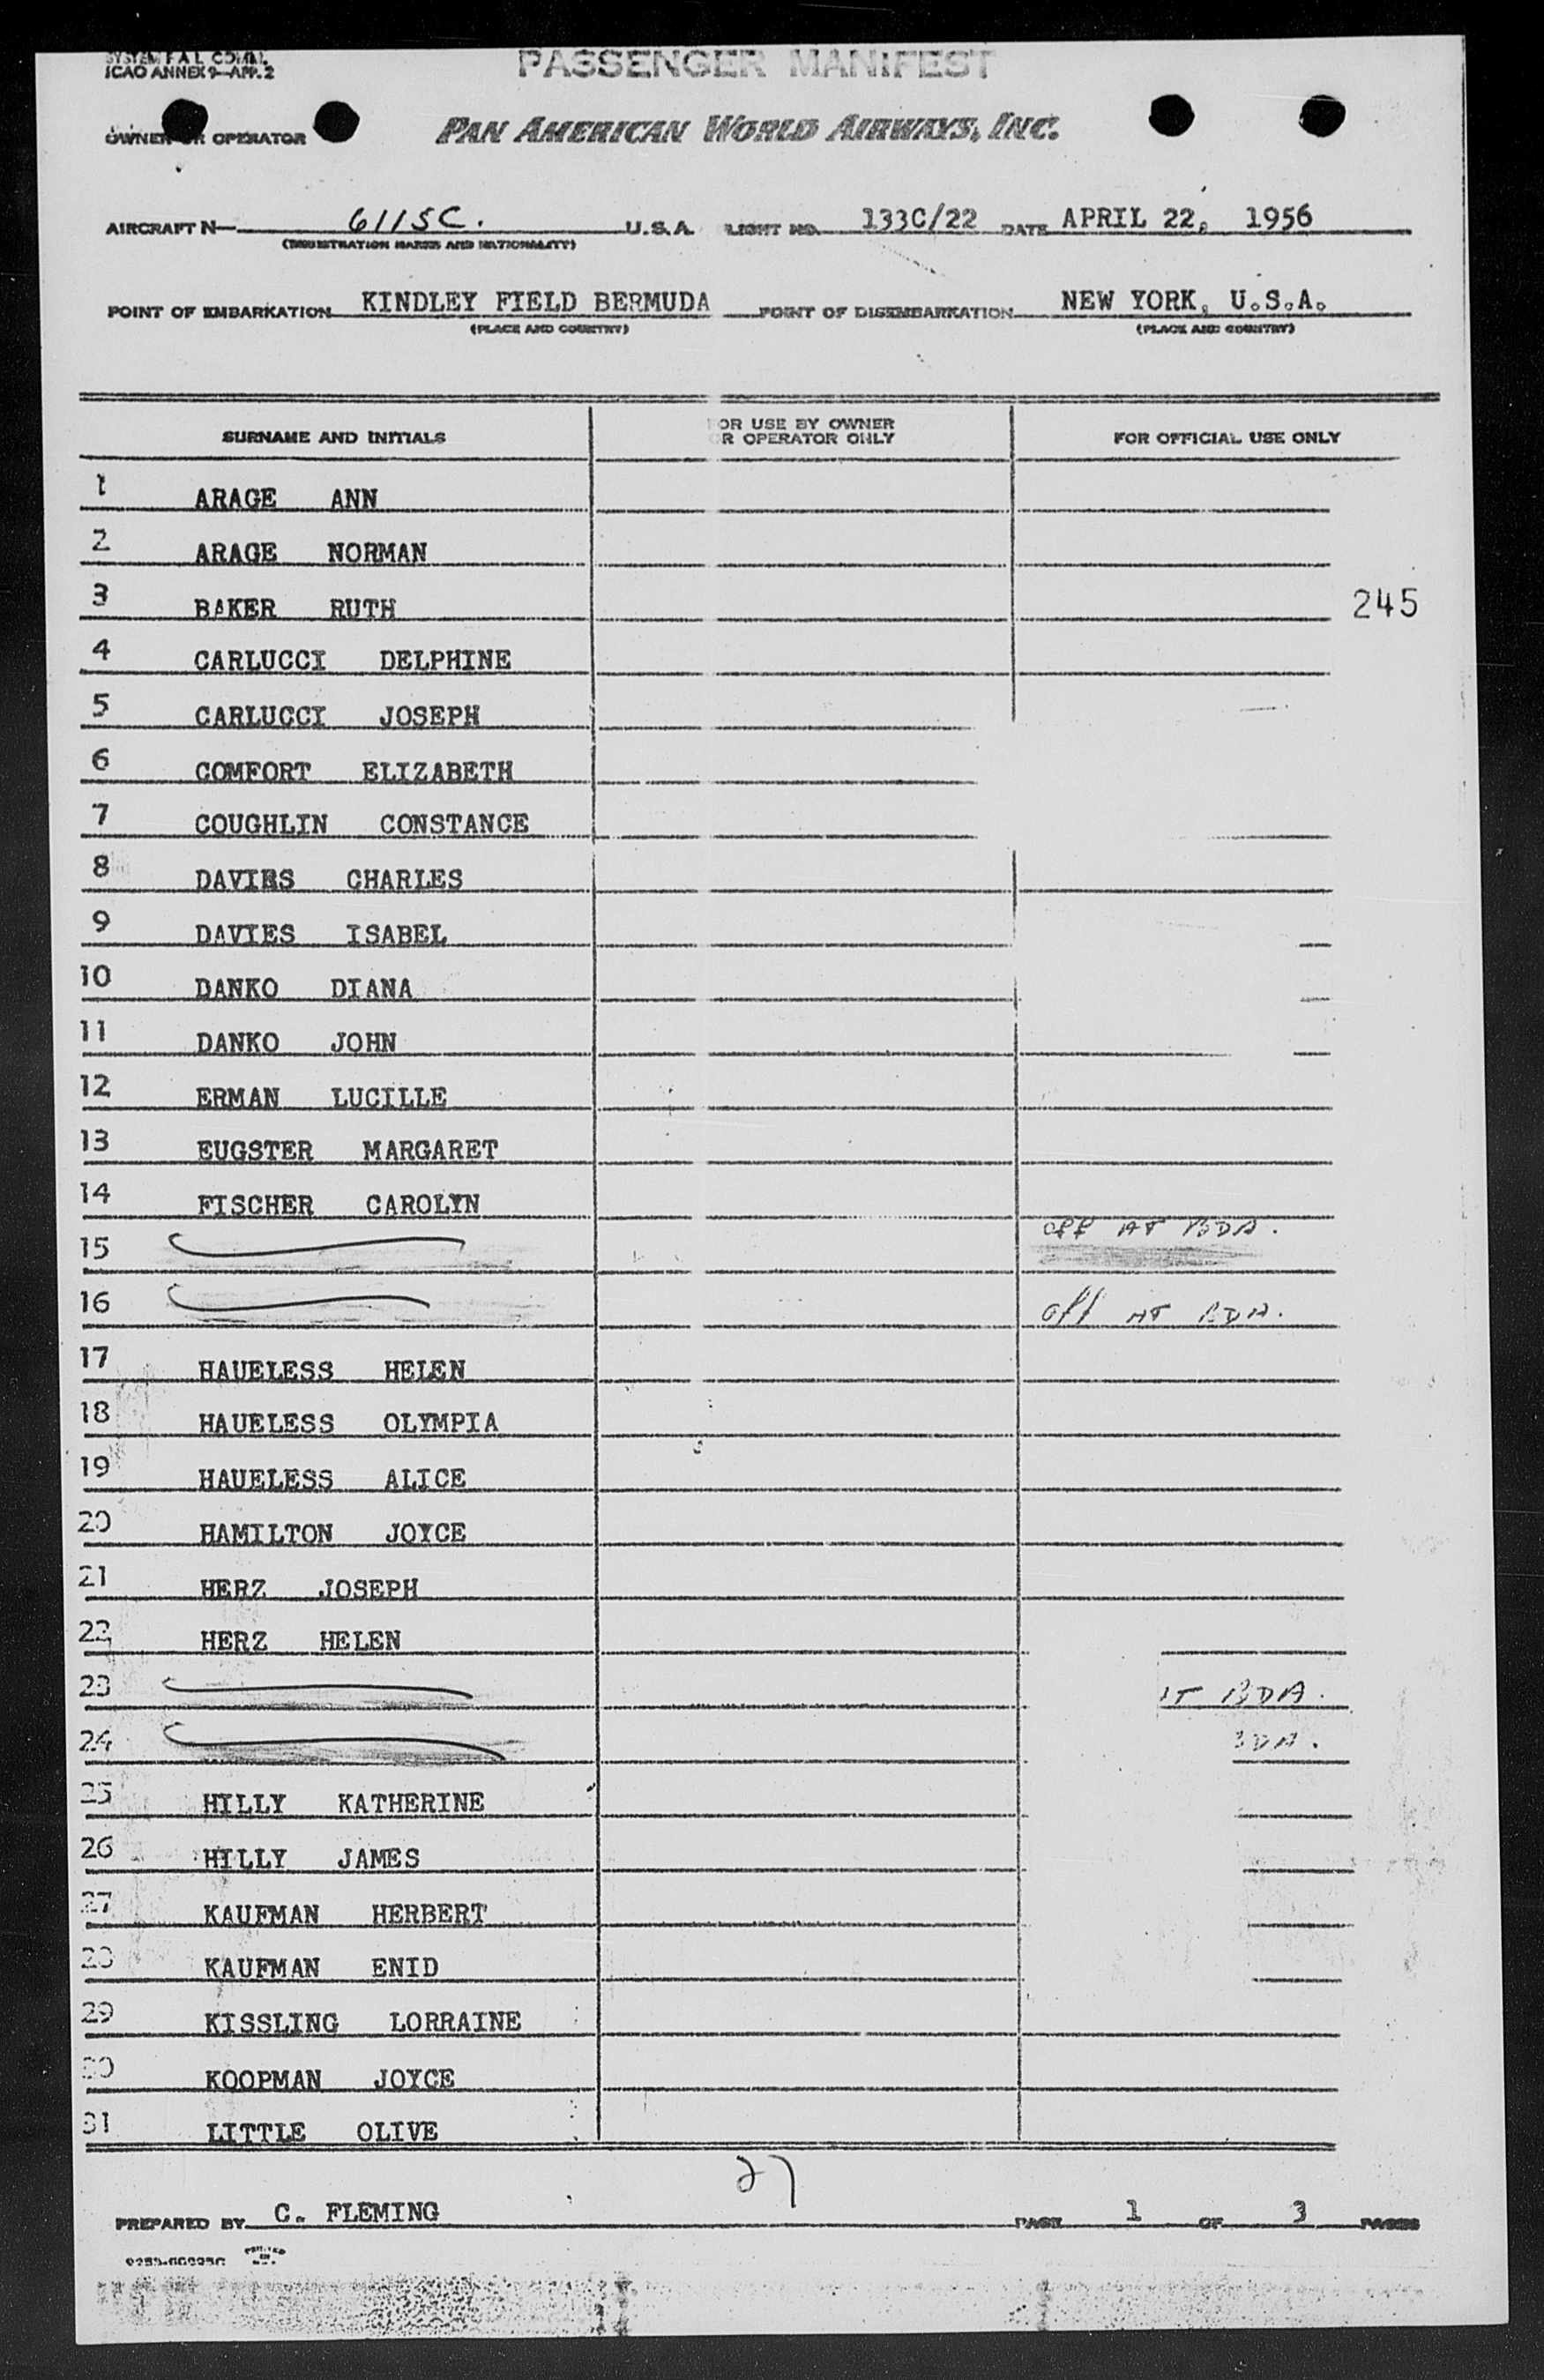 SYSTEM F A L COMM.
ICAO ANNEX 9—APP. 2
PASSENGER MANIFEST
OWNER OR OPERATOR
PAN AMERICAN WORLD AIRWAYS, INC.
AIRCRAFT N— 6115C. U.S.A. LIGHT NO. 133C/22 DATE APRIL 22, 1956
(REGISTRATION MARKS AND NATIONALITY)
POINT OF EMBARKATION KINDLEY FIELD BERMUDA POINT OF DISEMBARKATION NEW YORK, U.S.A.
(PLACE AND COUNTRY) (PLACE AND COUNTRY)
SURNAME AND INITIALS
OR USE BY OWNER
R OPERATOR ONLY
FOR OFFICIAL USE ONLY
1 ARAGE ANN
2 ARAGE NORMAN
3 BAKER RUTH 245
4 CARLUCCI DELPHINE
5 CARLUCCI JOSEPH
6 COMFORT ELIZABETH
7 COUGHLIN CONSTANCE
8 DAVIES CHARLES
9 DAVIES ISABEL
10 DANKO DIANA
11 DANKO JOHN
12 ERMAN LUCILLE
13 EUGSTER MARGARET
14 FISCHER CAROLYN
15 off AT BDA.
16 off AT BDA.
17 HAUELESS HELEN
18 HAUELESS OLYMPIA
19 HAUELESS ALICE
20 HAMILTON JOYCE
21 HERZ JOSEPH
22 HERZ HELEN
23 AT BDA.
24 BDA.
25 HILLY KATHERINE
26 HILLY JAMES
27 KAUFMAN HERBERT
28 KAUFMAN ENID
29 KISSLING LORRAINE
30 KOOPMAN JOYCE
31 LITTLE OLIVE
27
PREPARED BY C. FLEMING PAGE 1 OF 3 PAGES